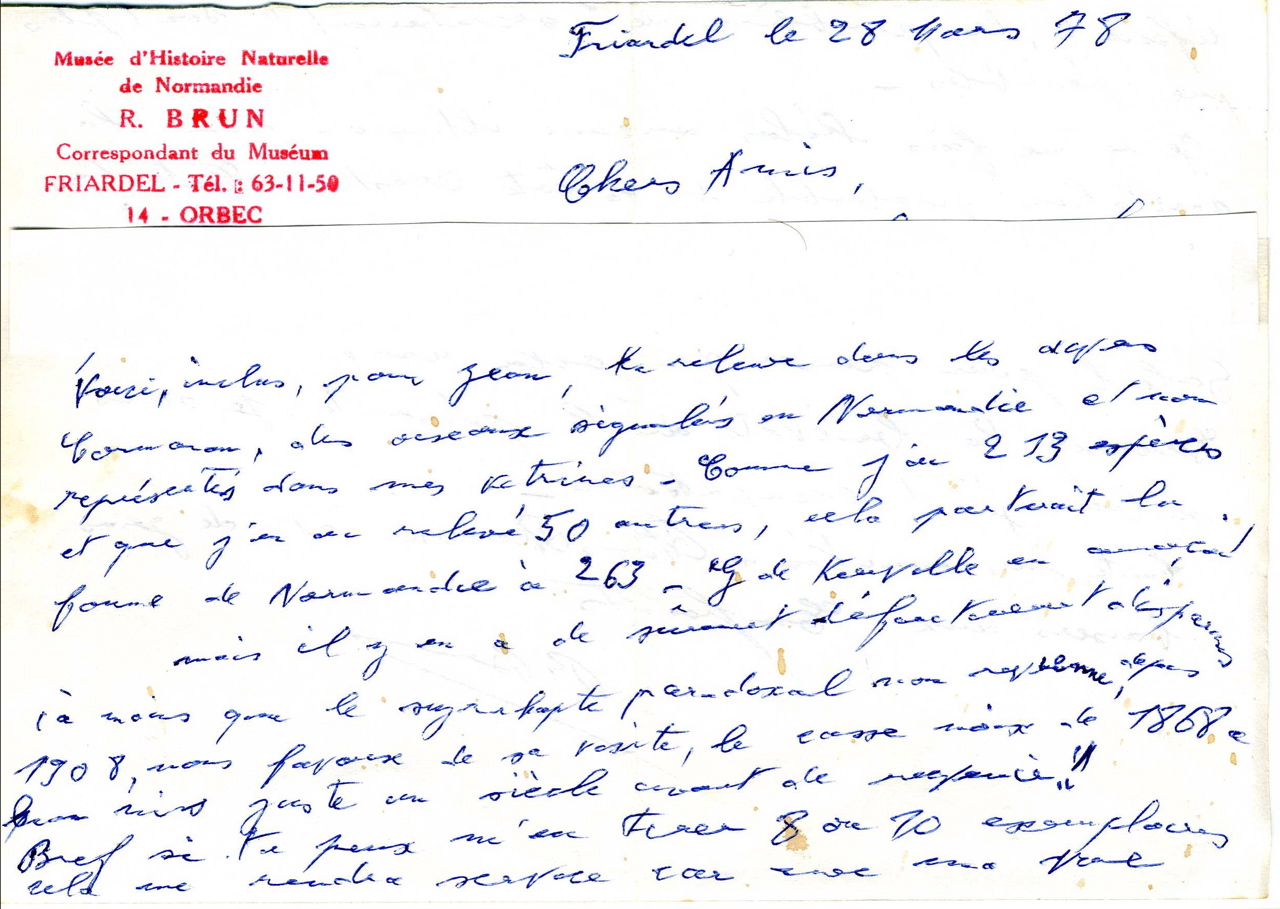 Musée d'Histoire Naturelle
de Normandie
R. BRUN
Correspondant du Muséum
FRIARDEL - Tél. : 63-11-50
14 - ORBEC
Friardel le 28 Mars 78
Chers Amis,
Voici, inclus, pour Jean, le relevé dans les
Cormoran, des oiseaux signalés en Normandie et non
représentés dans mes vitrines - Comme j'ai 213 espèces
et que j'en ai relevé 50 autres, cela porterait la
faune de Normandie à 263 - G de Kerville en
mais il y en a de sûrement définitivement disparus
(à moins que le syrrhapte paradoxal non depuis
1908, nous favorise de sa visite, le casse noix de 1868 a
juste un siècle avant de
Bref si tu peux m'en tirer 8 ou 10 exemplaires
cela me rendra service car avec ma